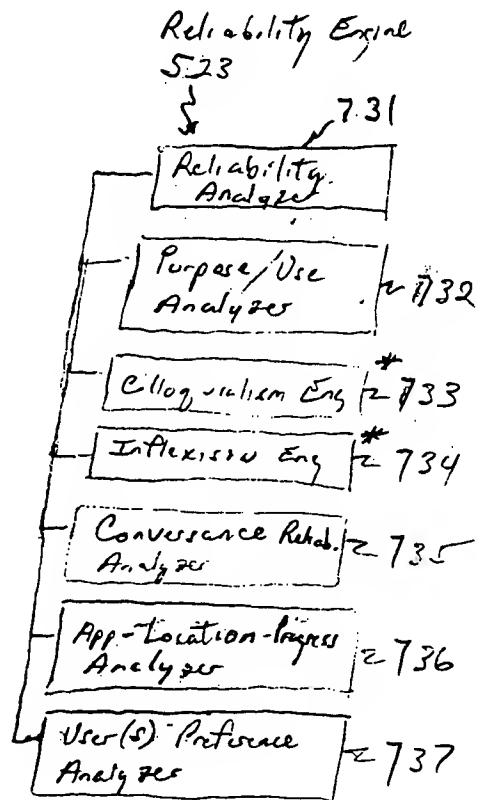 Reliability Engine
523
731
Reliability
Analyzer
Purpose/Use
Analyzer
732
Colloquialism Eng
*
733
Inflexion Eng
*
734
Conversance Reliab.
Analyzer
735
App-Location-Progress
Analyzer
736
User(s) Preference
Analyzer
737